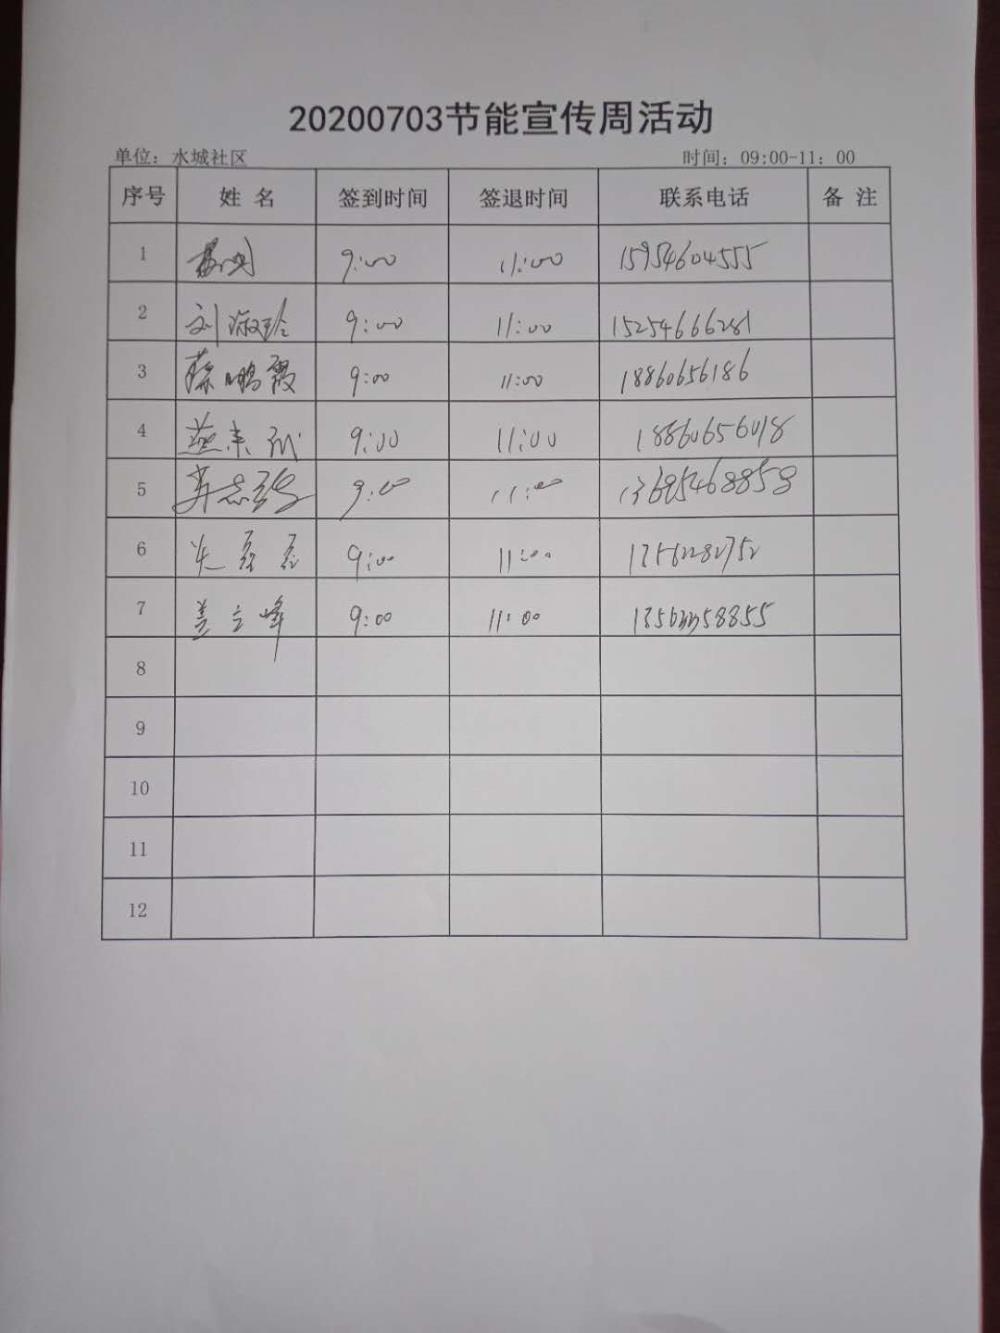 20200703节能宣传周活动
单位：水城社区 时间：09:00-11：00
序号 姓 名 签到时间 签退时间 联系电话 备 注
1 9:00 11:00 15954604555
2 刘淑玲 9:00 11:00 15254666281
3 蔡鹏霞 9:00 11:00 18860656186
4 燕来 9:00 11:00 18860656018
5 9:00 11:00 13695468858
6 9:00 11:00
7 盖立峰 9:00 11:00
8
9
10
11
12